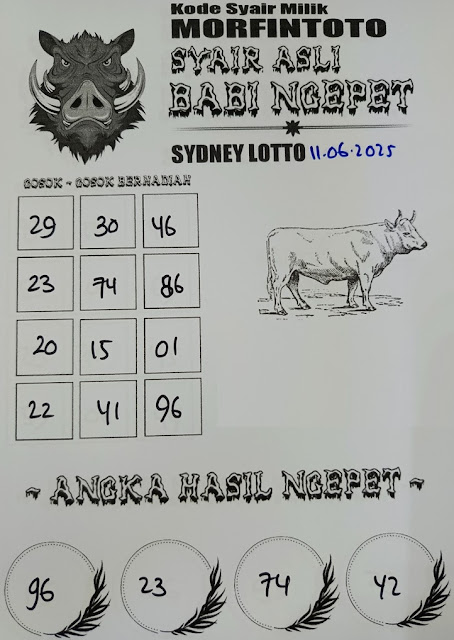 Kode Syair Milik
MORFINTOTO
SYAIR ASLI
BABI NGEPET
SYDNEY LOTTO 11.06.2025
GOSOK - GOSOK BERHADIAH
29 30 46
23 74 86
20 15 01
22 41 96
~ ANGKA HASIL NGEPET ~
96 23 74 42